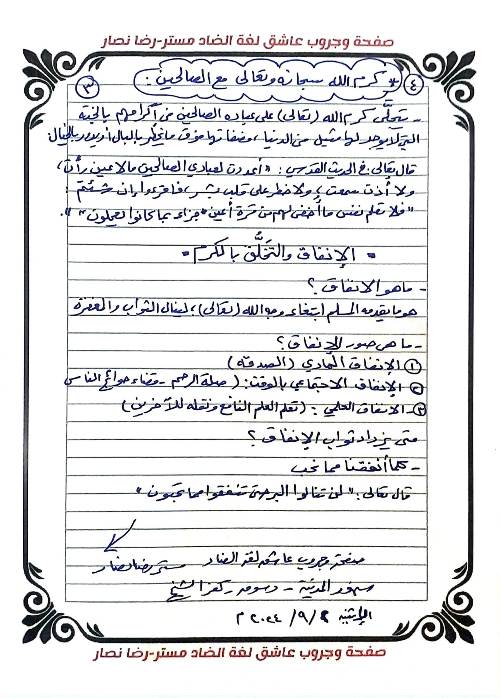 صفحة وجروب عاشق لغة الضاد مستر-رضا نصار
٣
(٤) * كرم الله سبحانه وتعالى مع الصالحين :
- يتجلَّى كرم الله (تعالى) على عباده الصالحين من إكرامهم بالجنة
التي لا يوجد لها مثيل من الدنيا، فصفاتها فوق ما يخطر بالبال أو يدور بالخيال
قال تعالى في الحديث القدسي : " أعددت لعبادي الصالحين ما لا عين رأت،
ولا أذن سمعت، ولا خطر على قلب بشر، فاقرءوا إن شئتم
" فلا تعلم نفس ما أُخفي لهم من قرة أعين جزاء بما كانوا يعملون " ".
" الإنفاق والتخلُّق بالكرم "
- ما هو الإنفاق ؟
هو ما يقدمه المسلم ابتغاء وجه الله (تعالى)، لينال الثواب والمغفرة
- ما هي صور الإنفاق ؟
① الإنفاق المادي (الصدقة)
② الإنفاق الاجتماعي بالوقت : (صلة الرحم - قضاء حوائج الناس
③- الإنفاق العلمي : (تعلم العلم النافع ونقله للآخرين)
متى يزداد ثواب الإنفاق ؟
- كلما أنفقنا مما نحب
قال تعالى : " لن تنالوا البر حتى تنفقوا مما تحبون "
صفحة وجروب عاشق لغة الضاد مستر رضا نصار
سنهور المدينة - دسوق - كفر الشيخ
الإثنين ٢ / ٩ / ٢٠٢٤ م
صفحة وجروب عاشق لغة الضاد مستر-رضا نصار